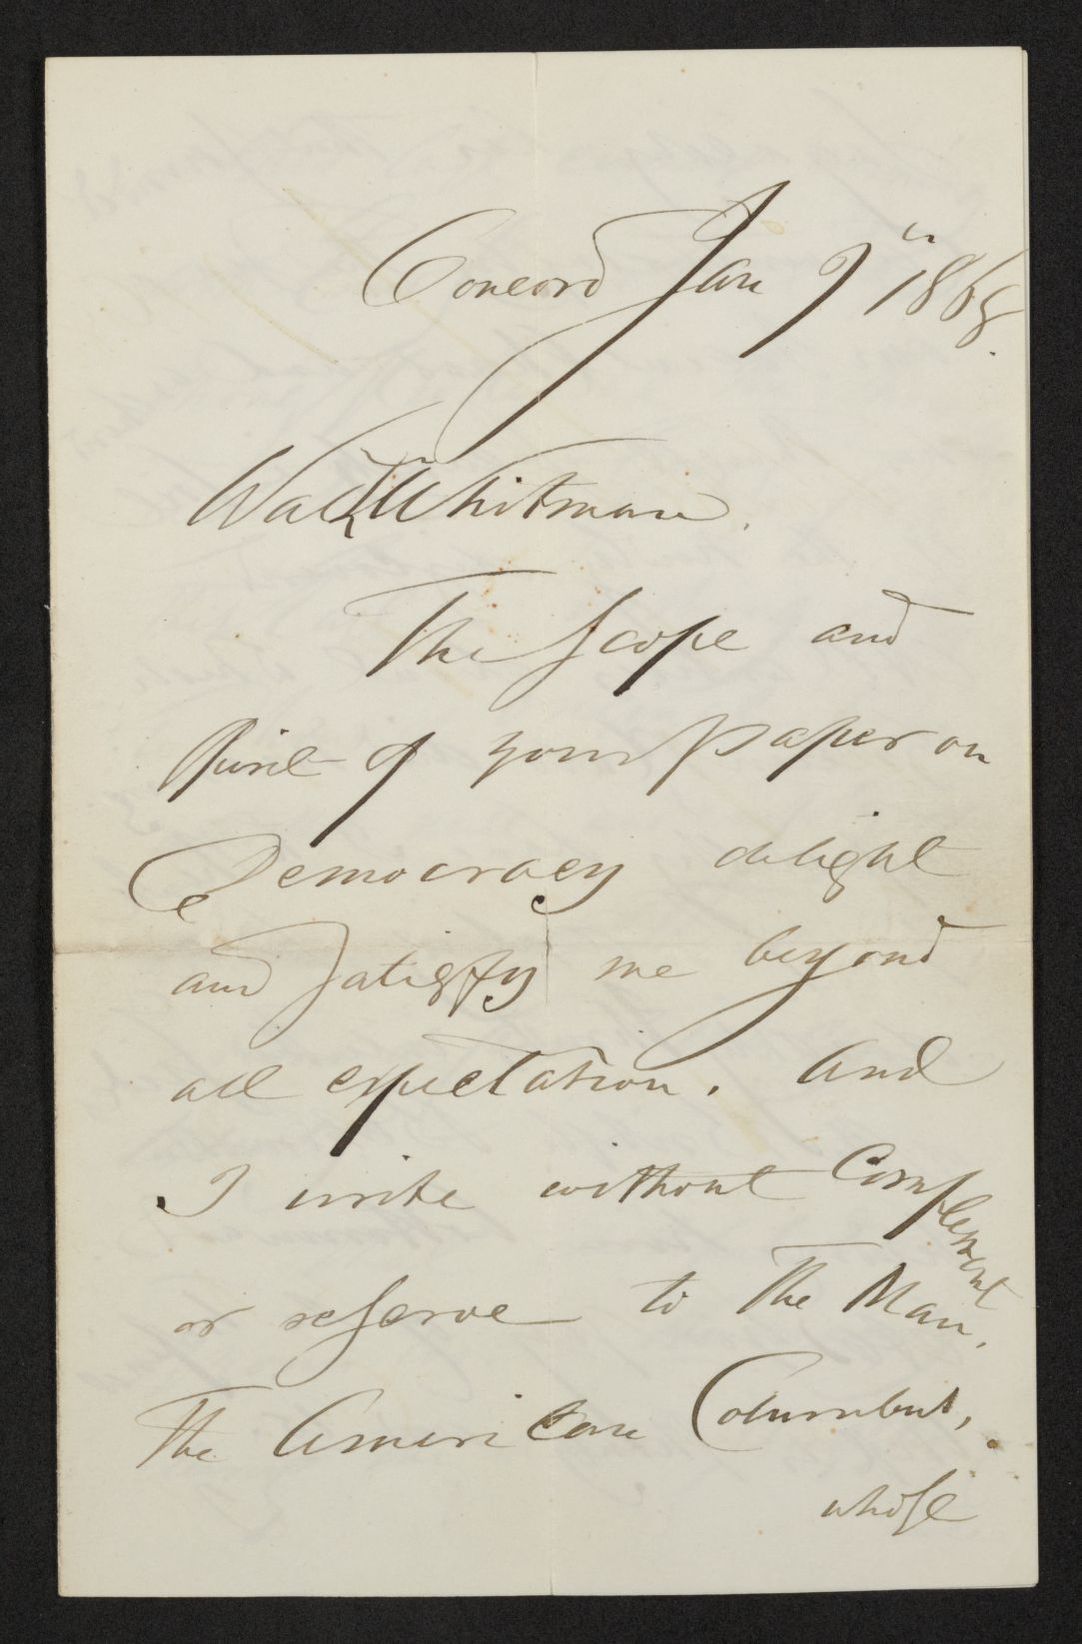 Concord Jan 7th 1868.
Walt Whitman.
The scope and
Spirit of your paper on
Democracy delight
and satisfy me beyond
all expectation. And
I write without Complement
or reserve to the Man,
The American Columbus,
whose